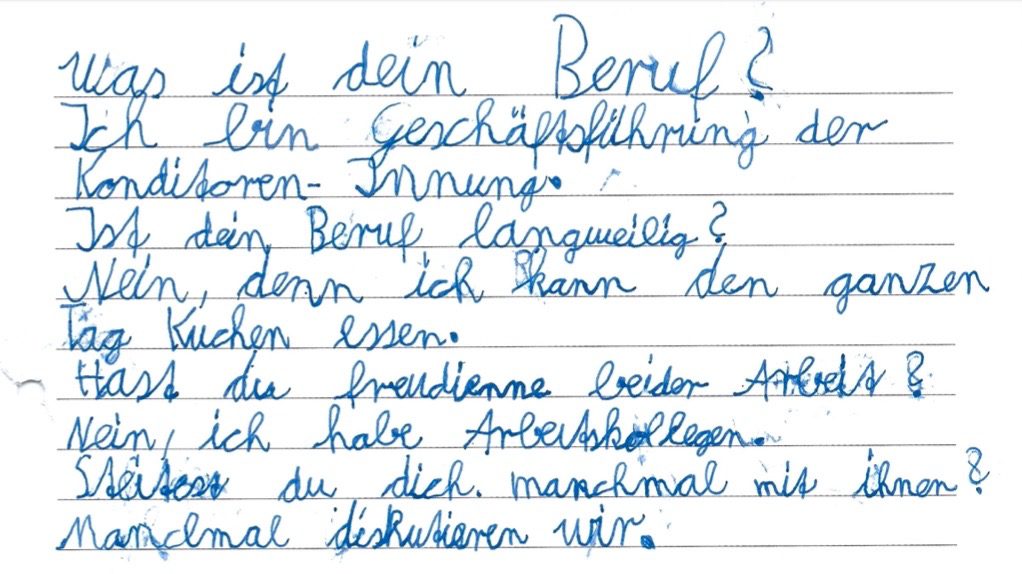 Was ist dein Beruf?
Ich bin Geschäftsführing der
Konditoren-Innung.
Ist dein Beruf langweilig?
Nein, denn ich kann den ganzen
Tag Kuchen essen.
Hast du freudienne beider Arbeit?
Nein, ich habe Arbeitskollegen.
du dich. manchmal mit ihnen?
Manclmal diskutieren wir.